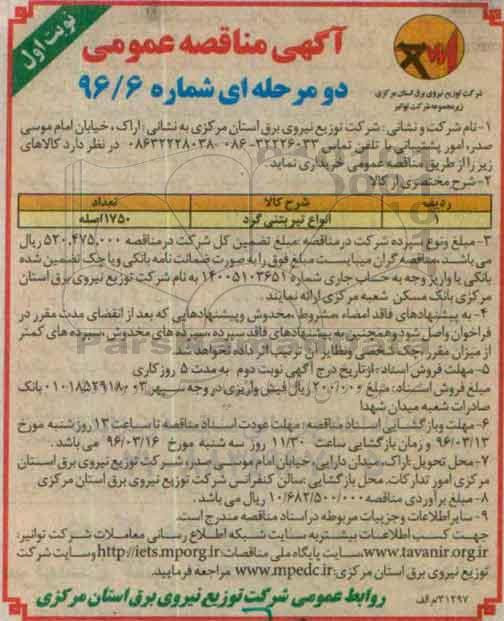 نوبت اول
آگهی مناقصه عمومی
دو مرحله ای شماره ۹۶/۶
شرکت توزیع نیروی برق استان مرکزی
زیرمجموعه شرکت توانیر
۱- نام شرکت و نشانی: شرکت توزیع نیروی برق استان مرکزی به نشانی: اراک، خیابان امام موسی
صدر، امور پشتیبانی با تلفن تماس ۳۲۲۲۶۰۳۳-۰۸۶ -۰۸۶۳۲۲۲۸۰۳۸ در نظر دارد کالاهای
زیر را از طریق مناقصه عمومی خریداری نماید.
۲- شرح مختصری از کالا
ردیف شرح کالا تعداد
۱ انواع تیر بتنی گرد ۱۷۵۰اصله
۳- مبلغ ونوع سپرده شرکت درمناقصه :مبلغ تضمین کل شرکت درمناقصه ۵۲۰.۴۷۵.۰۰۰ ریال
می باشد. مناقصه گران میبایست مبلغ فوق را به صورت ضمانت نامه بانکی ویا چک تضمین شده
بانکی یا واریز وجه به حساب جاری شماره ۱۴۰۰۵۱۰۳۶۵۱ به نام شرکت توزیع نیروی برق استان
مرکزی بانک مسکن شعبه مرکزی ارائه نمایند.
۴- به پیشنهادهای فاقد امضاء ،مشروط ،مخدوش وپیشنهادهایی که بعد از انقضای مدت مقرر در
فراخوان واصل شود وهمچنین به پیشنهادهای فاقد سپرده ،سپرده های مخدوش،سپرده های کمتر
از میزان مقرر، چک شخصی ونظایر آن ترتیب اثر داده نخواهد شد.
۵- مهلت فروش اسناد :ازتاریخ درج آگهی نوبت دوم به مدت ۵ روز کاری
مبلغ فروش اسناد: مبلغ ۲۰۰/۰۰۰ ریال فیش واریزی در وجه سپهر ۰۱۰۱۸۵۲۹۱۸۰۰۳ بانک
صادرات شعبه میدان شهدا
۶- مهلت وبازگشایی اسناد مناقصه: مهلت عودت اسناد مناقصه تا ساعت ۱۳ روز شنبه مورخ
۹۶/۰۳/۱۳ و زمان بازگشایی ساعت ۱۱/۳۰ روز سه شنبه مورخ ۹۶/۰۳/۱۶ می باشد.
۷- محل تحویل :اراک، میدان دارایی، خیابان امام موسی صدر، شرکت توزیع نیروی برق استان
مرکزی امور تدارکات. محل بازگشایی :سالن کنفرانس شرکت توزیع نیروی برق استان مرکزی
۸- مبلغ برآوردی مناقصه ۱۰/۶۸۲/۵۰۰/۰۰۰ ریال می باشد.
۹- سایر اطلاعات وجزییات مربوطه دراسناد مناقصه مندرج است.
جهت کسب اطلاعات بیشتر به سایت شبکه اطلاع رسانی معاملات شرکت توانیر:
www.tavanir.org.ir، سایت پایگاه ملی مناقصات:http://iets.mporg.ir وسایت شرکت
توزیع نیروی برق استان مرکزی: www.mpedc.ir مراجعه فرمایید.
۳۱۲۹۷/م الف
روابط عمومی شرکت توزیع نیروی برق استان مرکزی